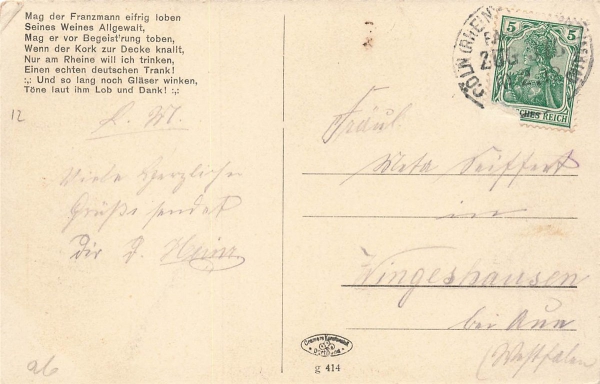 Mag der Franzmann eifrig loben
Seines Weines Allgewalt,
Mag er vor Begeist'rung toben,
Wenn der Kork zur Decke knallt,
Nur am Rheine will ich trinken,
Einen echten deutschen Trank!
:,: Und so lang noch Gläser winken,
Töne laut ihm Lob und Dank! :,:
12
L. M.
Viele herzliche
Grüße sendet
Dir D. Heinz
ab
CÖLN (RHEIN)
5 5
DEUTSCHES REICH
Fräul.
Meta Seiffert
in
Wingeshausen
bei Aue
(Westfalen)
g 414